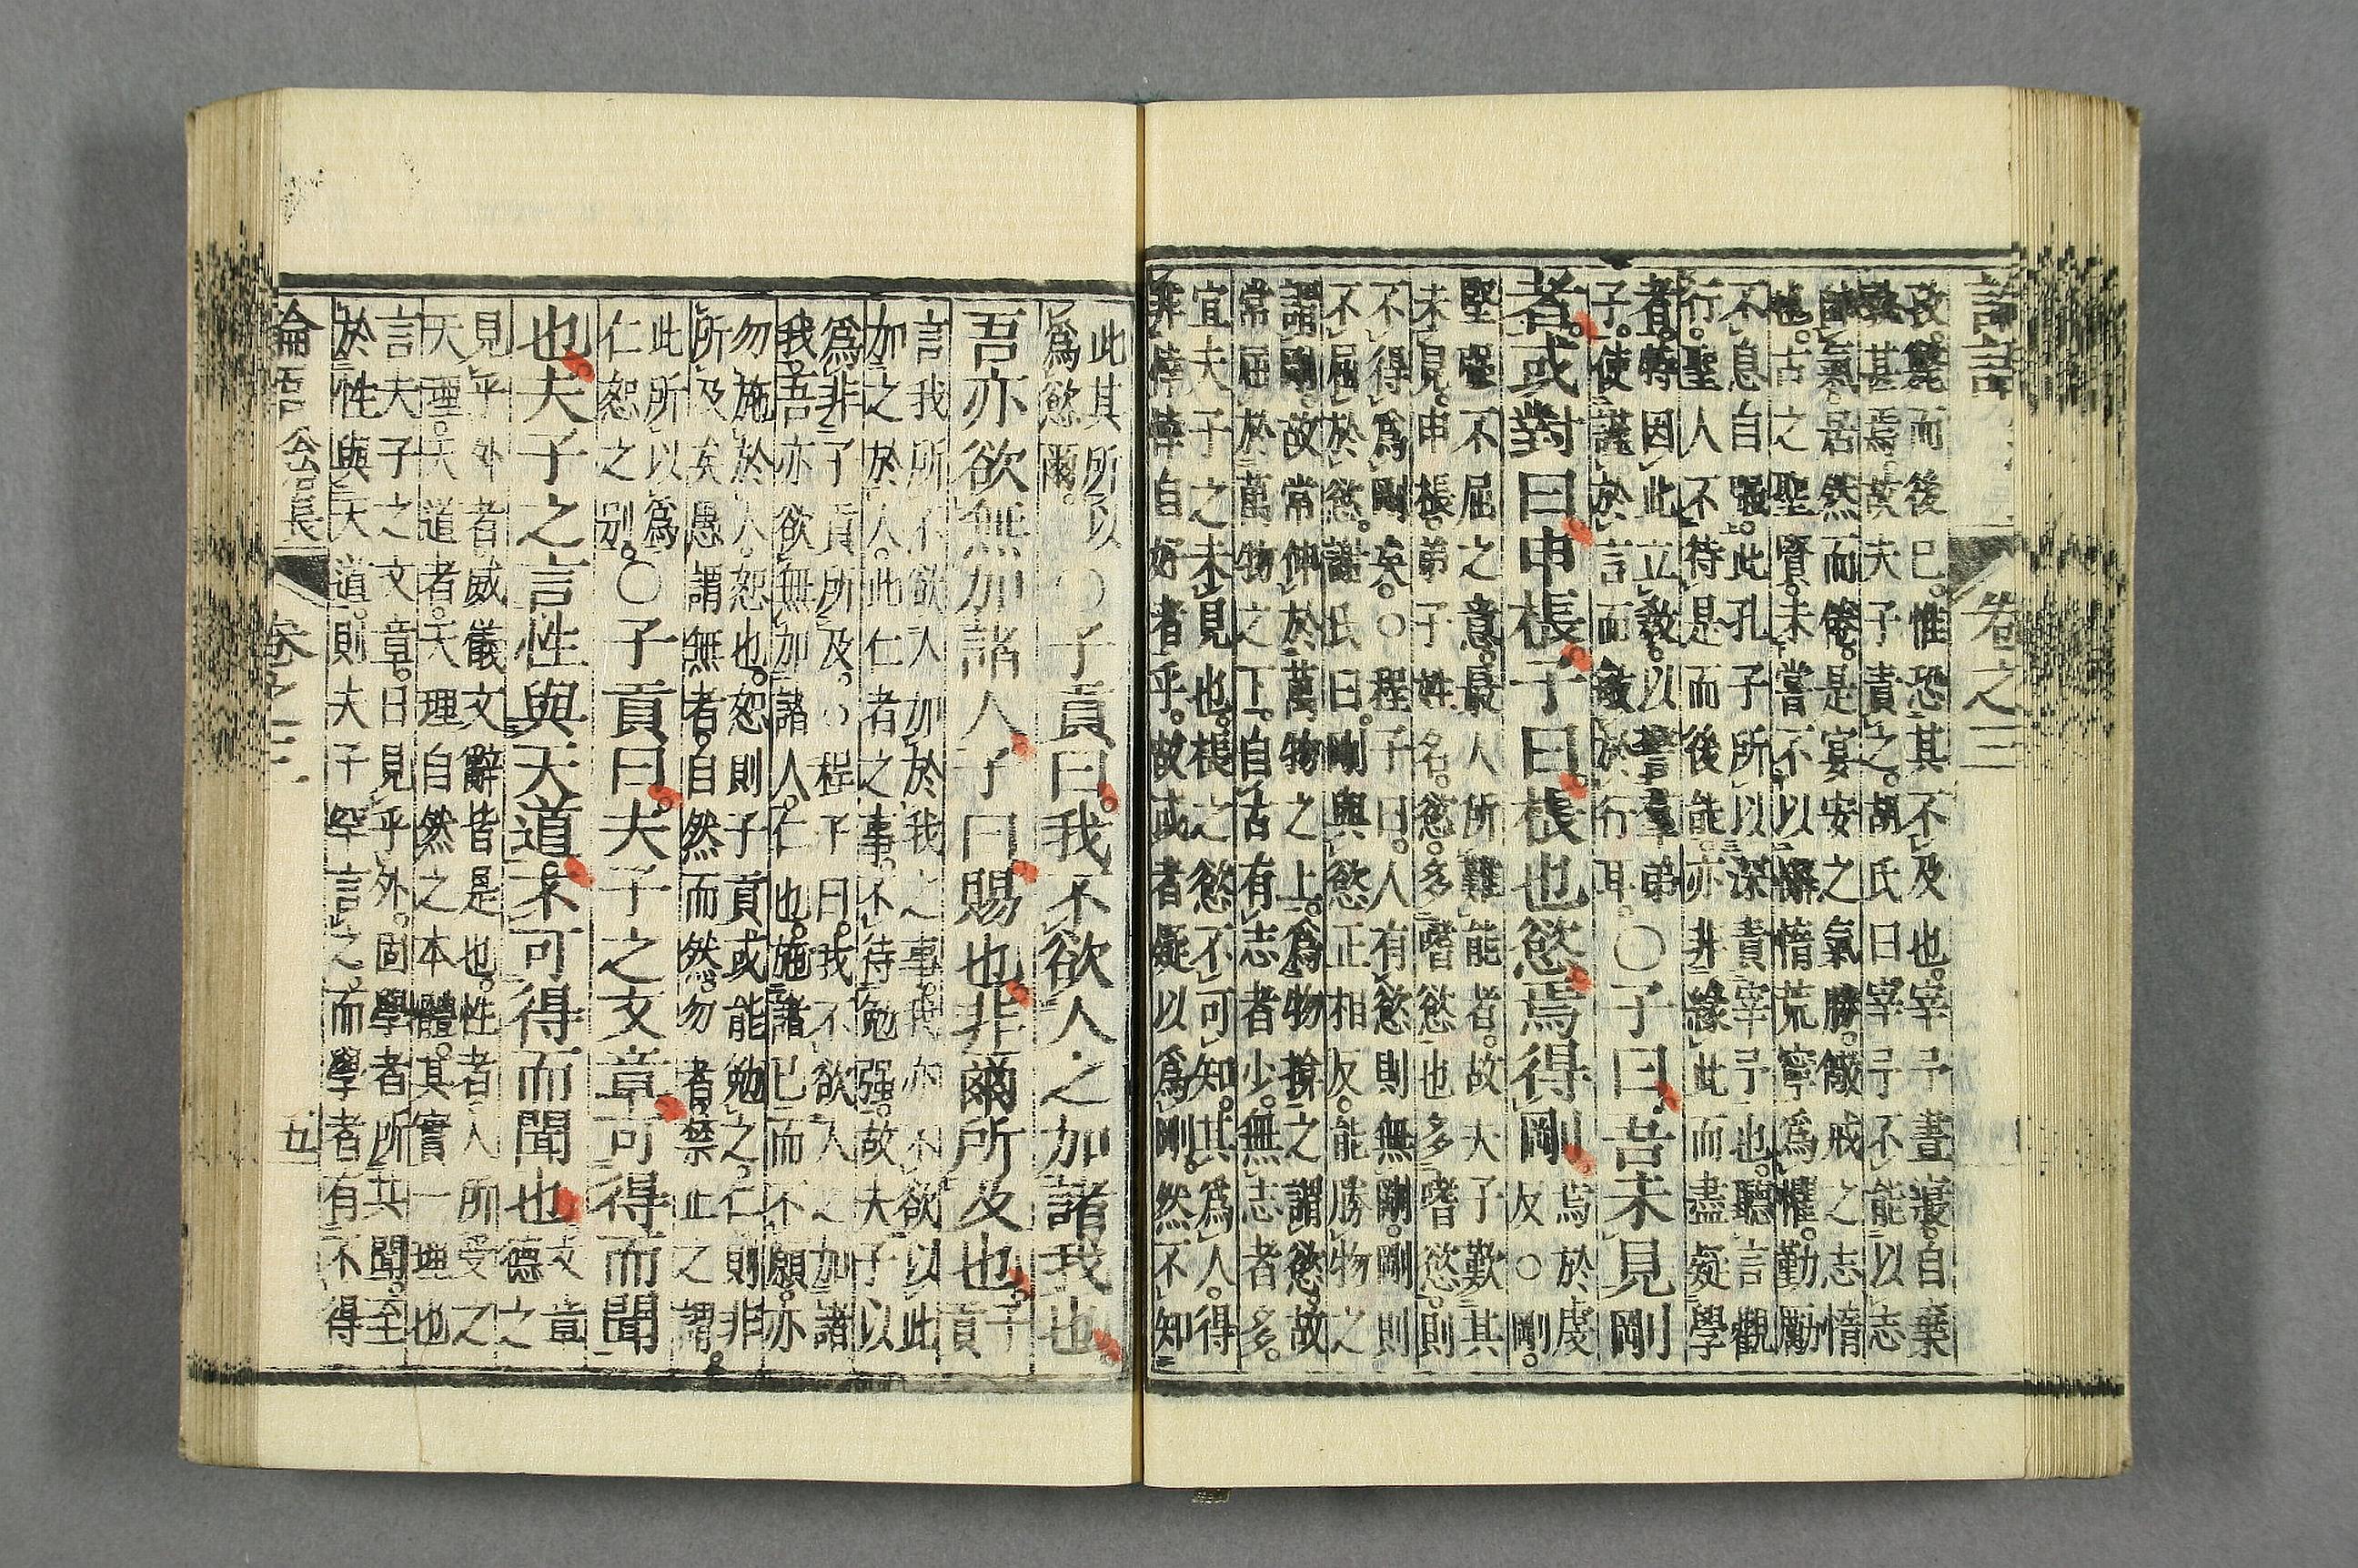 論語 卷之三
孜。斃而後已。惟恐其不及也。宰予晝寢。自棄
孰甚焉。故夫子責之。胡氏曰。宰予不能以志
帥氣。居然而倦。是宴安之氣勝。儆戒之志惰
也。古之聖賢。未嘗不以懈惰荒寧爲懼。勤勵
不息自彊。此孔子所以深責宰予也。聽言觀
行。聖人不待是而後能。亦非緣此而盡疑學
者。特因此立教。以警羣弟
子。使謹於言而敏於行耳。
○子曰。吾未見剛
者。或對曰。申棖。子曰。棖也慾。焉得剛。
焉於虔
反○剛。
堅彊不屈之意。最人所難能者。故夫子歎其
未見。申棖。弟子姓名。慾。多嗜慾也。多嗜慾。則
不得爲剛矣。○程子曰。人有慾則無剛。剛則
不屈於慾。謝氏曰。剛與慾正相反。能勝物之
謂剛。故常伸於萬物之上。爲物揜之謂慾。故
常屈於萬物之下。自古有志者少。無志者多。
宜夫子之未見也。棖之慾不可知。其爲人。得
非悻悻自好者乎。故或者疑以爲剛。然不知
此其所以
爲慾爾。
○子貢曰。我不欲人之加諸我也。
吾亦欲無加諸人。子曰。賜也。非爾所及也。
子
貢
言我所不欲人加於我之事。我亦不欲以此
加之於人。此仁者之事。不待勉强。故夫子以
爲非子貢所及。○程子曰。我不欲人之加諸
我。吾亦欲無加諸人。仁也。施諸已而不願。亦
勿施於人。恕也。恕則子貢或能勉之。仁則非
所及矣。愚謂無者。自然而然。勿者。禁止之謂。
此所以爲
仁恕之別。
○子貢曰。夫子之文章。可得而聞
也。夫子之言性與天道。不可得而聞也。
文章
德之
見乎外者。威儀文辭皆是也。性者。人所受之
天理。天道者。天理自然之本體。其實一理也
言夫子之文章。日見乎外。固學者所共聞。至
於性與天道。則夫子罕言之。而學者有不得
論語 公冶長 卷之三 五